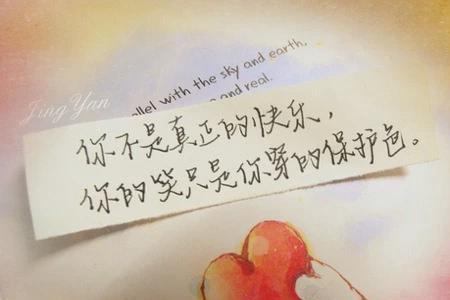 allel with the sky and earth,
and real.
Jing Yan
你不是真正的快乐，
你的笑只是你穿的保护色。